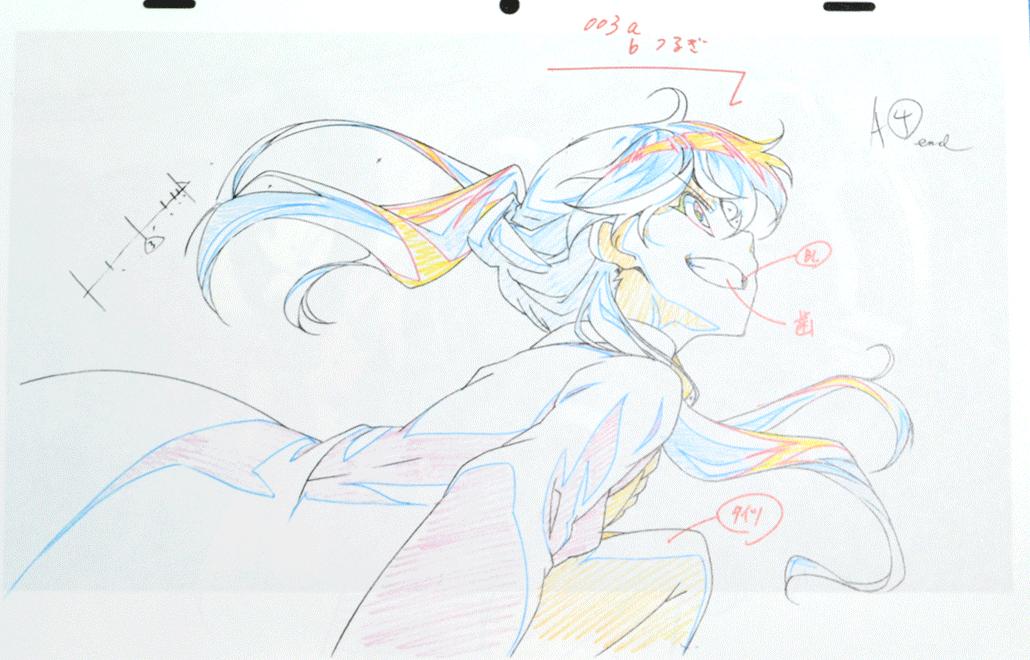 003 a
b つるぎ
A④
end
③
BL
歯
タイツ